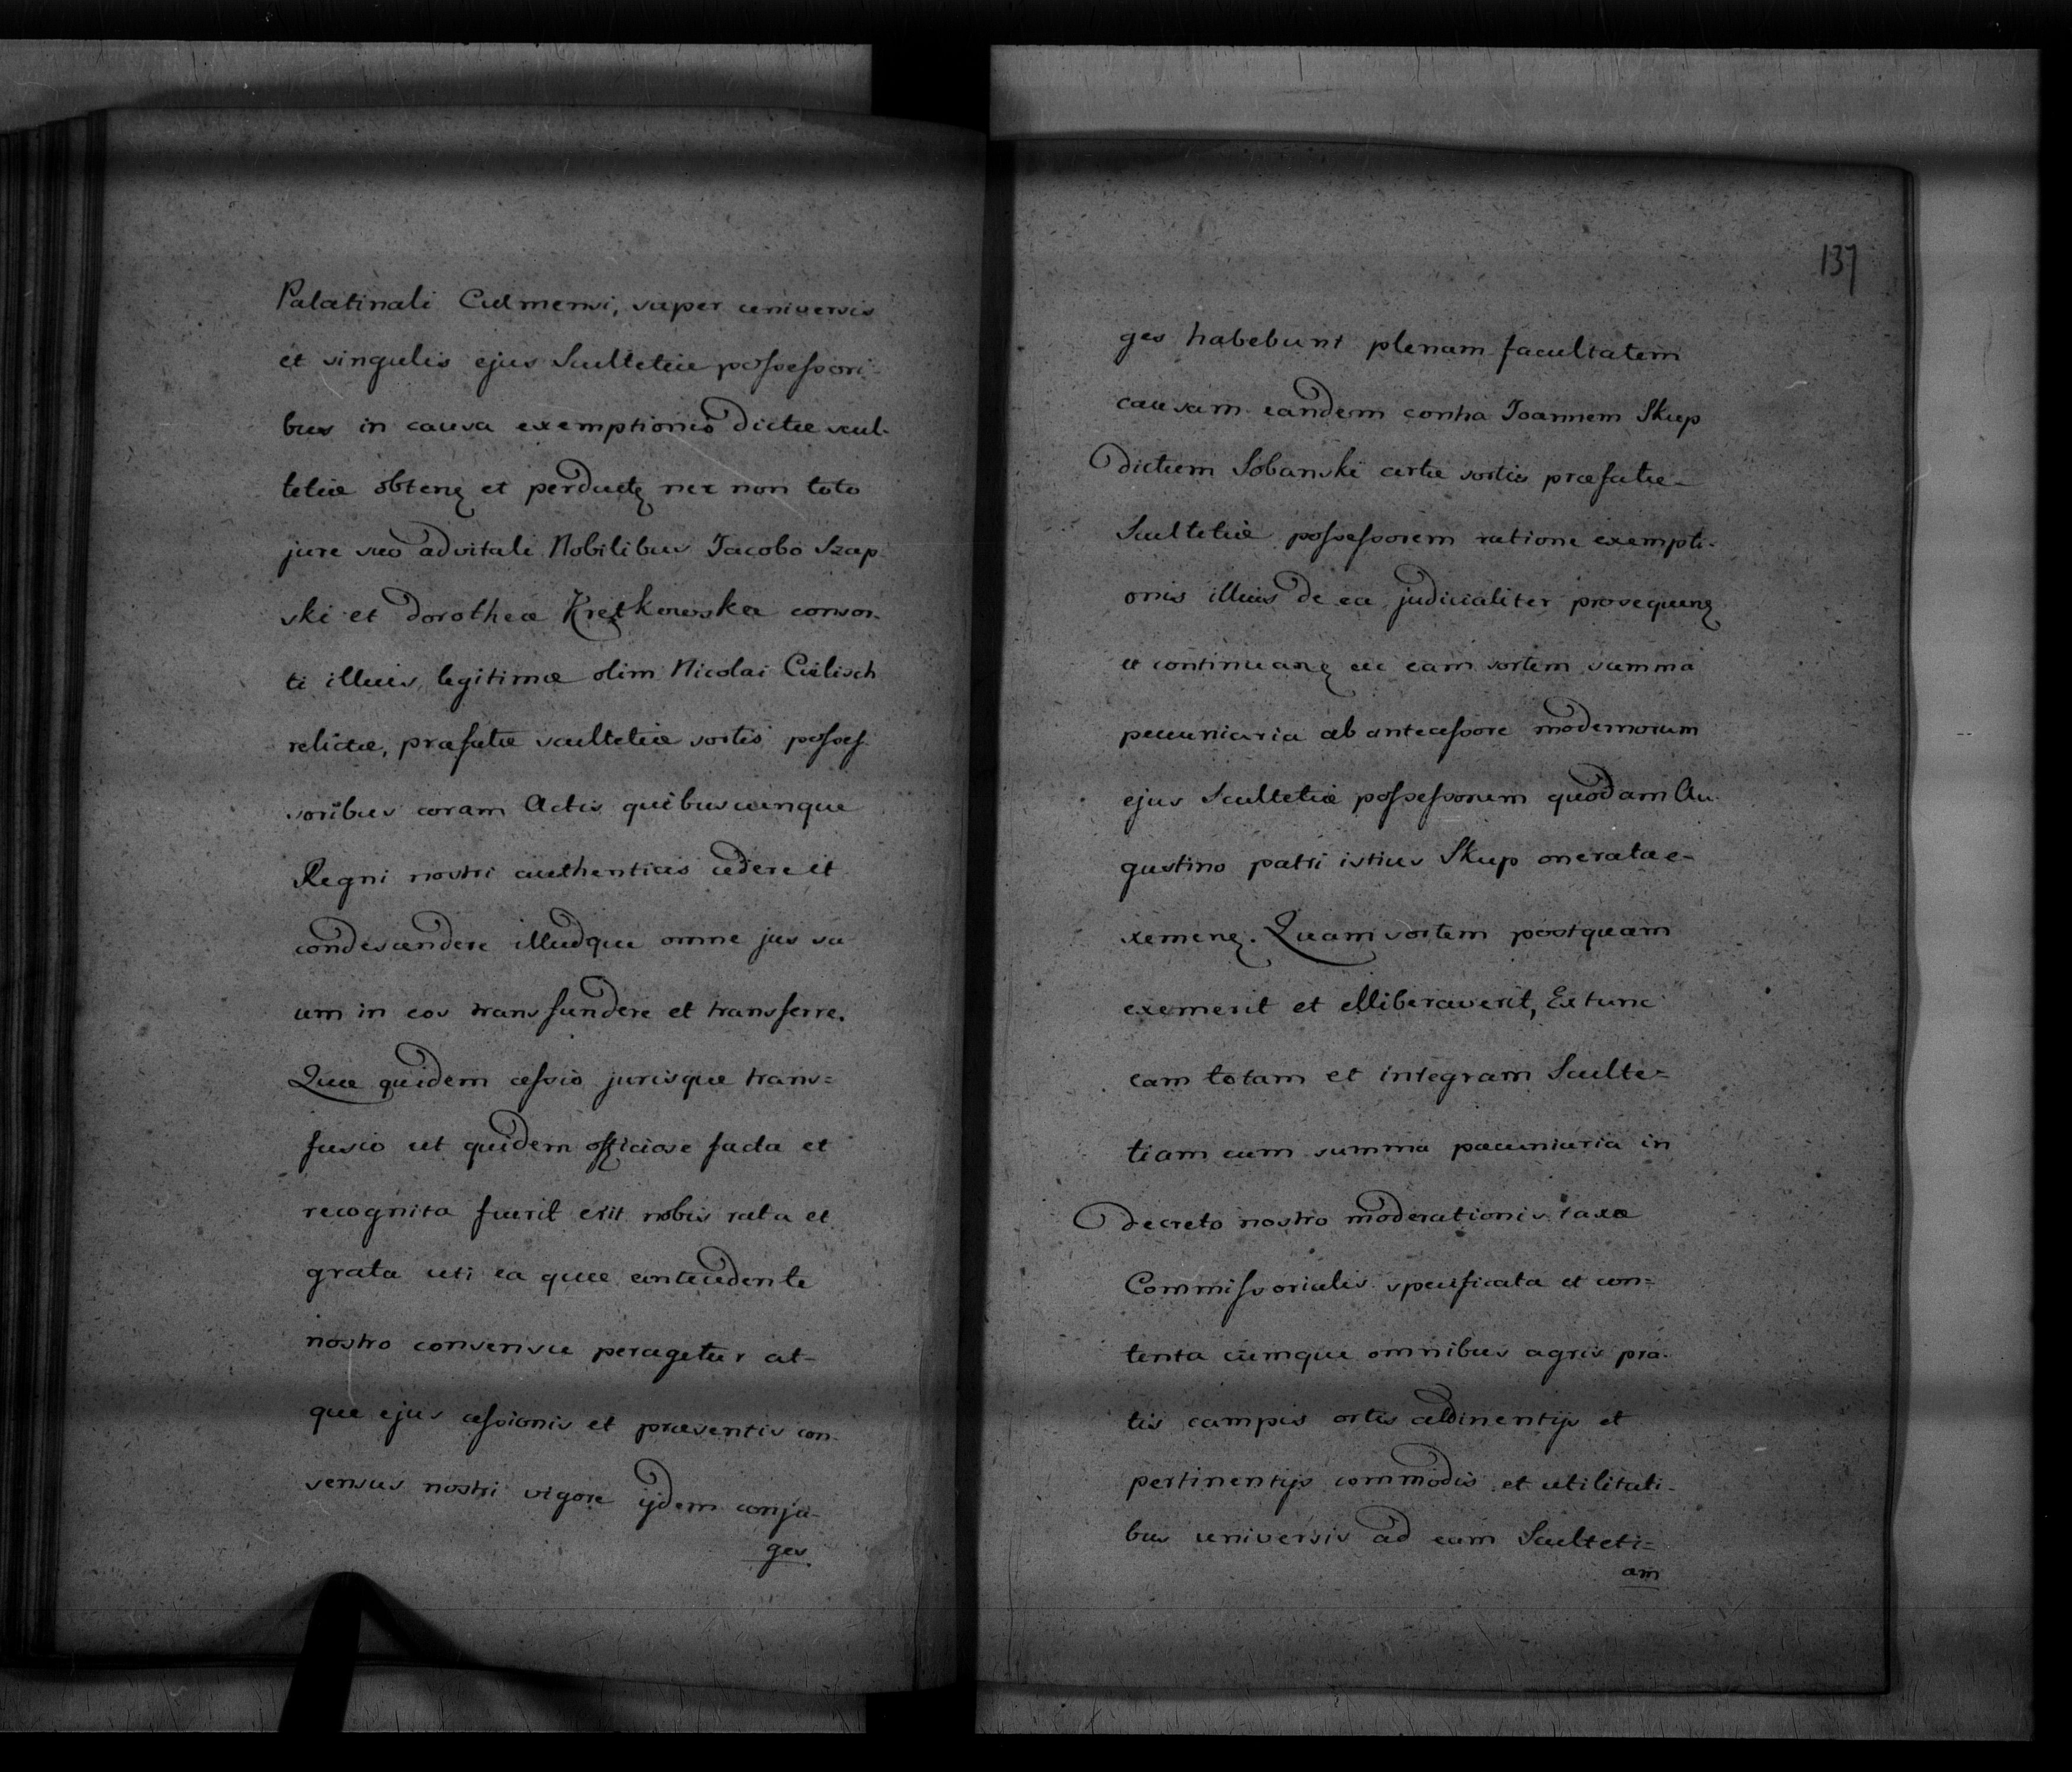 Palatinali Culmensi, super universis
et singulis ejus Scultetiæ possessori-
bus in causa exemptionis dictæ scul-
tetiæ obtenꝫ et perductꝫ nec non toto
jure suo advitali Nobilibus Jacobo Szap-
ski et Dorotheæ Kretkowska conson-
ti illius, legitimæ olim Nicolai Cielisch
relictæ, præfatæ scultetiæ sortis posses-
soribus coram Actis quibuscunque
Regni nostri authenticis cedere et
condescendere illudque omne jus su
um in eos transfundere et transferre.
Quæ quidem cessio jurisque trans=
fusio ut quidem officiose facta et
recognita fuerit erit nobis rata et
grata uti ea quæ antecedente
nostro consensu peragetur at-
que ejus cessionis et præsentis con-
sensus nostri vigore ijdem conju-
ges
137
ges habebunt plenam facultatem
causam eandem contra Joannem Skup
dictum Sobanski certæ sortis præfatæ
Scultetiæ possessorem ratione exempti-
onis illius de ea judicialiter prosequenꝫ
et continuanꝫ ac eam sortem summa
pecuniaria ab antecessore modernorum
ejus Scultetiæ possessorum quodam Au-
gustino patri istius Skup onerata e-
xemenꝫ. Quam sortem postquam
exemerit et elliberaverit, Ex tunc
eam totam et integram Sculte=
tiam cum summa pecuniaria in
Decreto nostro moderationis taxæ
Commissorialis specificata et con=
tenta cumque omnibus agris pra-
tis campis ortis attinentijs et
pertinentijs commodis et utilitati-
bus universis ad eam Sculteti=
am